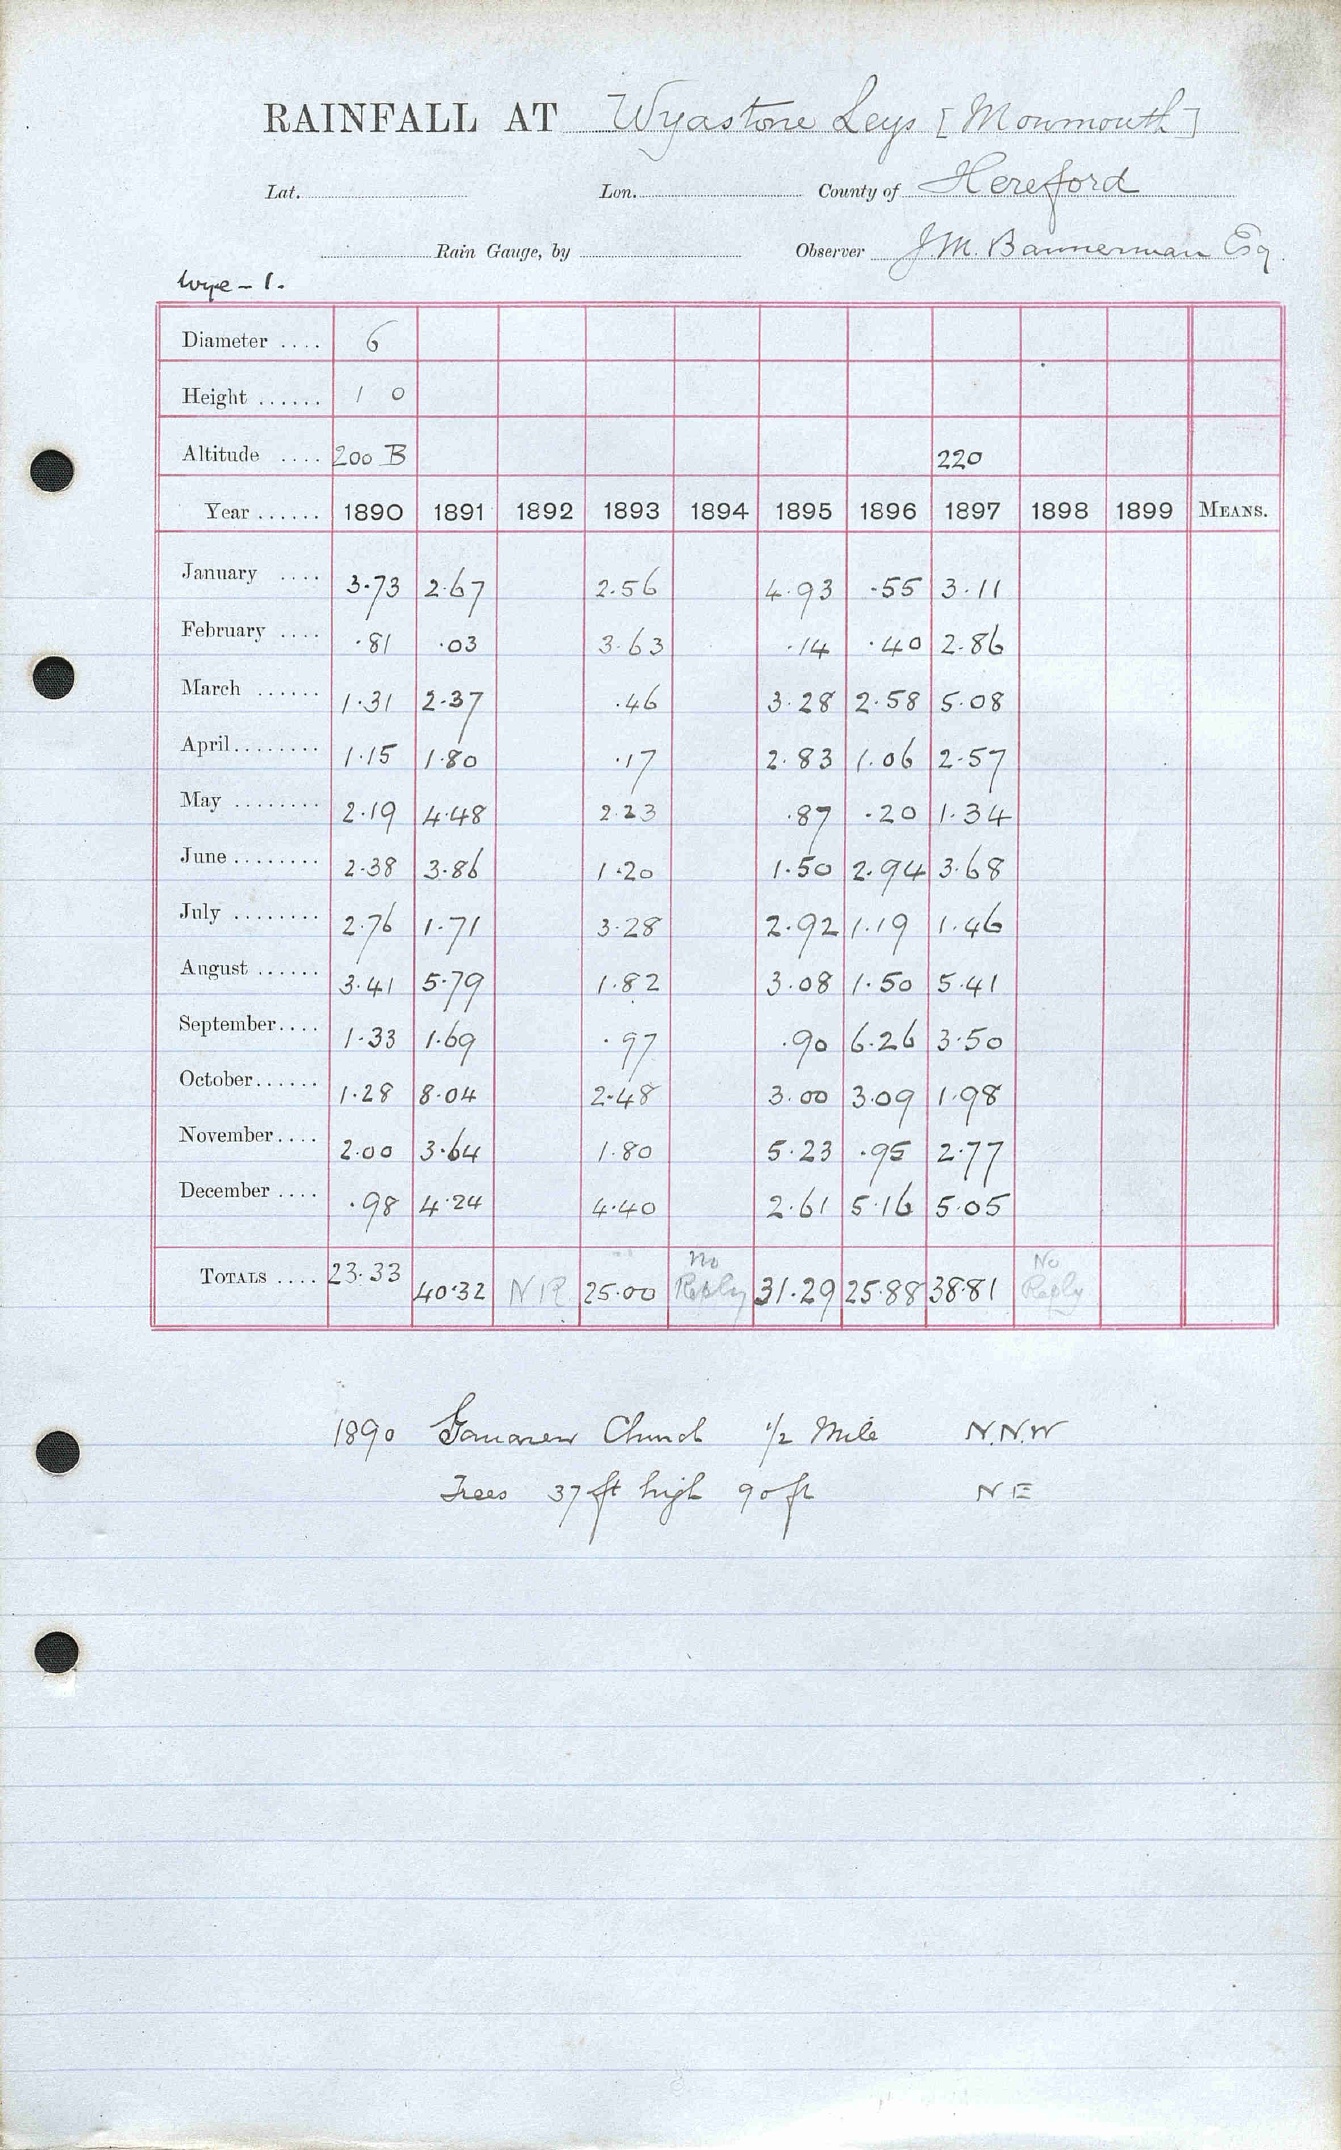 RAINFALL AT Wyastone Leys [Monmouth]
Lat. Lon. County of Hereford
Rain Gauge, by Observer J.M. Bannerman Esq.
Wye - 1.
Diameter .... 6
Height ...... 1 0
Altitude .... 200 B 220
Year ...... 1890 1891 1892 1893 1894 1895 1896 1897 1898 1899 MEANS.
January .... 3.73 2.67 2.56 4.93 .55 3.11
February .... .81 .03 3.63 .14 .40 2.86
March ...... 1.31 2.37 .46 3.28 2.58 5.08
April ........ 1.15 1.80 .17 2.83 1.06 2.57
May ........ 2.19 4.48 2.23 .87 .20 1.34
June ........ 2.38 3.86 1.20 1.50 2.94 3.68
July ........ 2.76 1.71 3.28 2.92 1.19 1.46
August ...... 3.41 5.79 1.82 3.08 1.50 5.41
September.... 1.33 1.69 .97 .90 6.26 3.50
October...... 1.28 8.04 2.48 3.00 3.09 1.98
November.... 2.00 3.64 1.80 5.23 .95 2.77
December .... .98 4.24 4.40 2.61 5.16 5.05
TOTALS .... 23.33 40.32 NR 25.00 No Reply 31.29 25.88 38.81 No Reply
1890 Ganarew Church 1/2 Mile N.N.W
Trees 37 ft high 90 ft NE